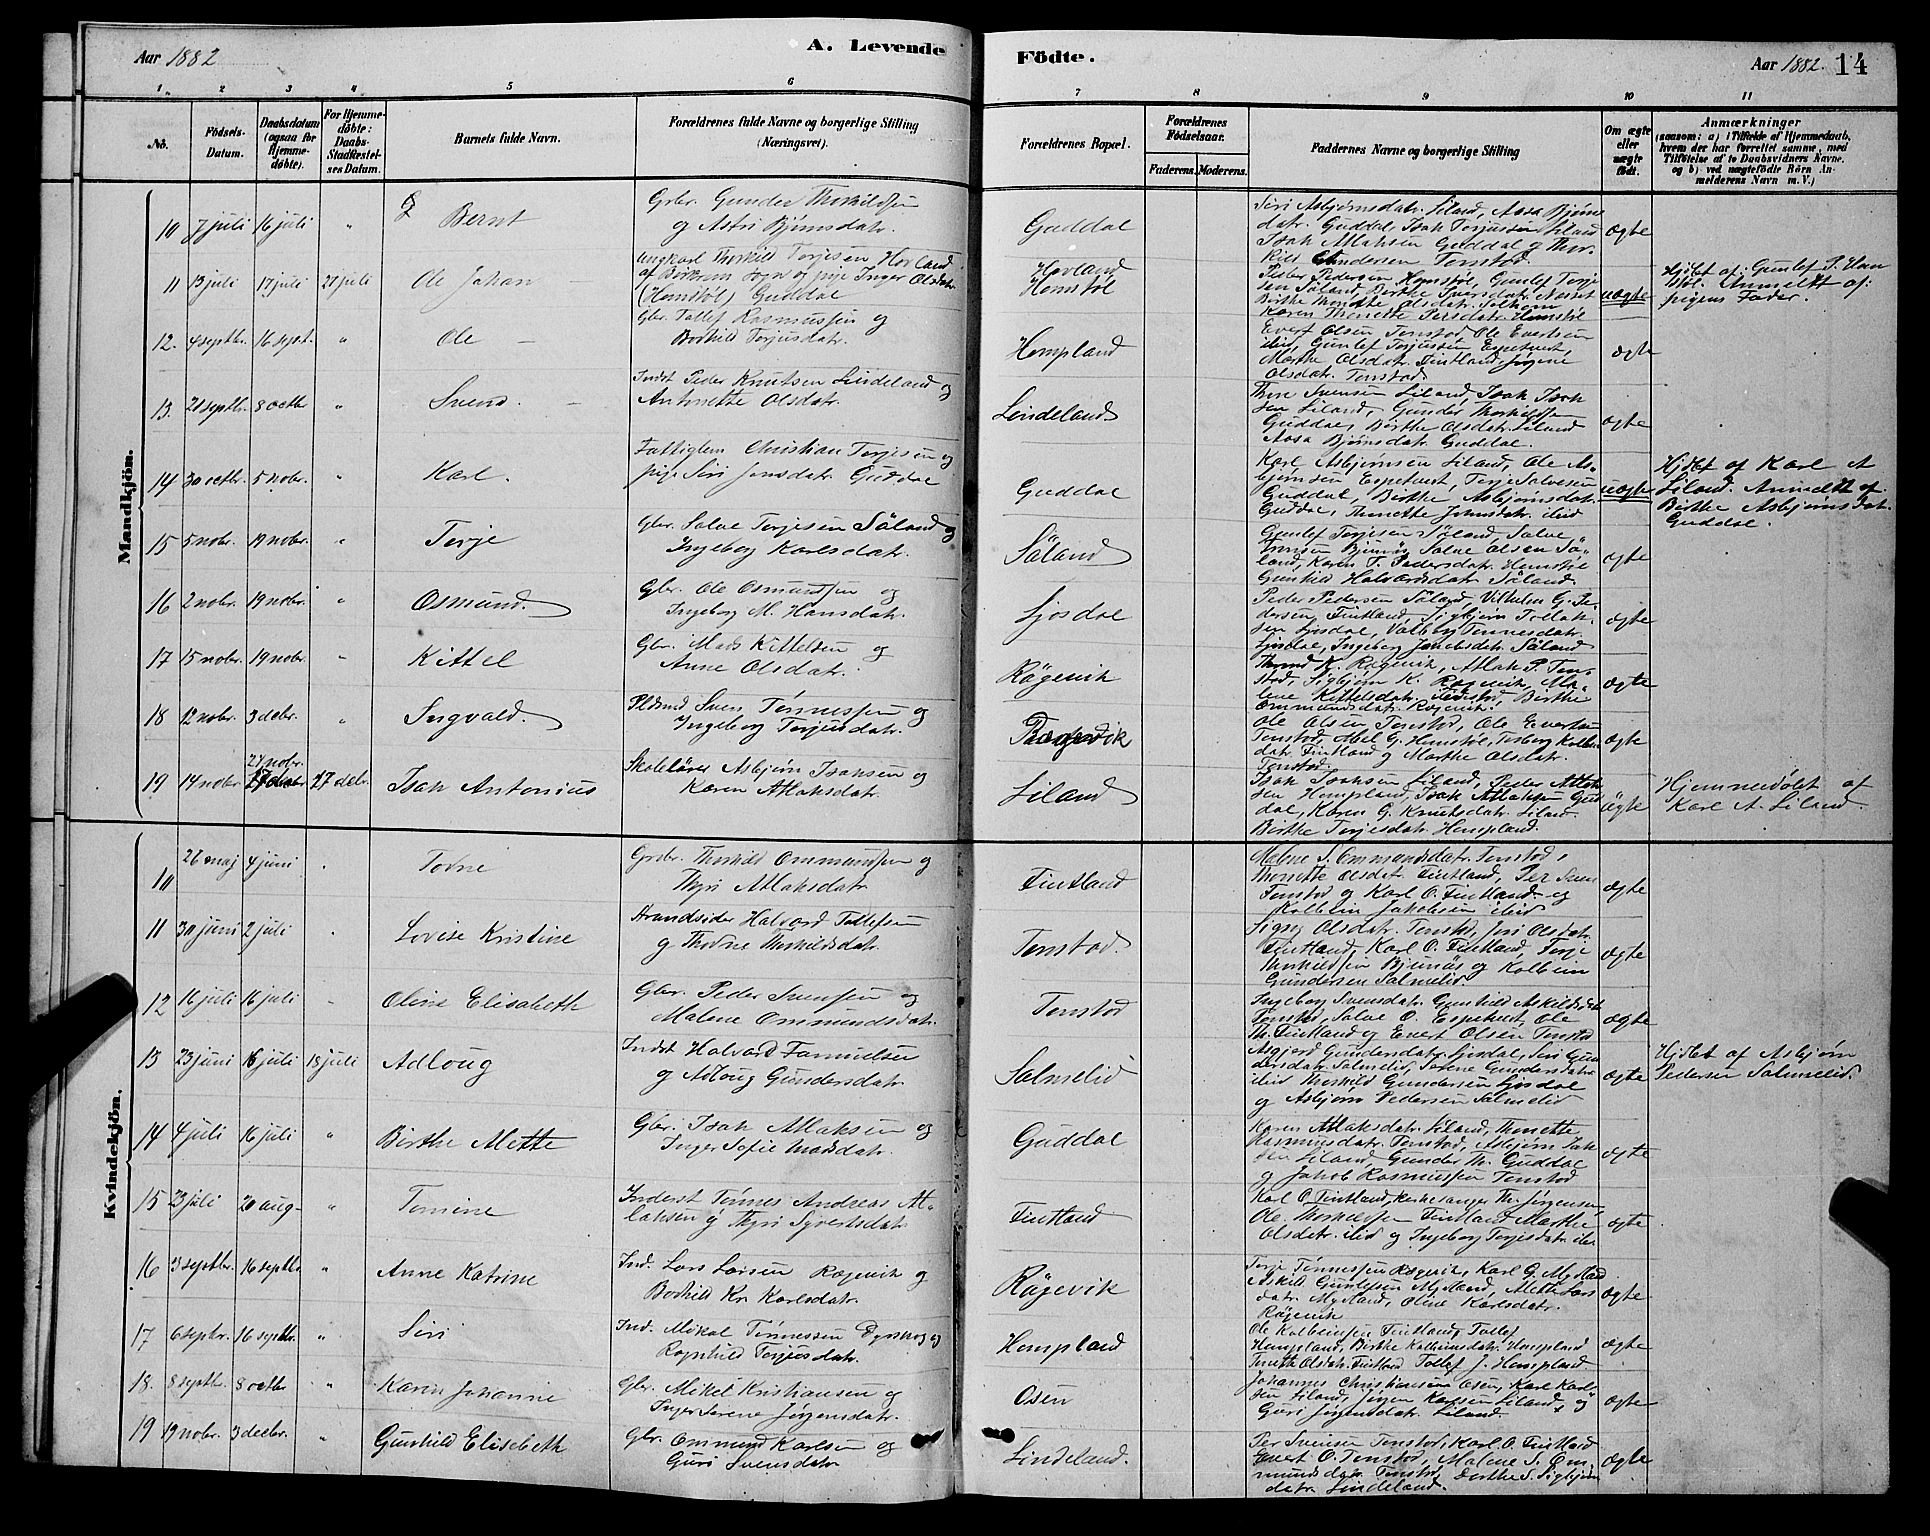 Aar 1882
A. Levende
Födte.
Aar 1882.
14
1
2
3
4
5
6
7
8
9
10
11
No.
Födsels-Datum.
Daabsdatum (ogsaa for Hjemmedöbte).
For Hjemmedöbte: Daabs-Stadfestelses Datum.
Barnets fulde Navn.
Forældrenes fulde Navne og borgerlige Stilling
(Næringsvei).
Forældrenes Bopæl.
Forældrenes Födselsaar.
Faderens.
Moderens.
Faddernes Navne og borgerlige Stilling
Om ægte eller uægte födt.
Anmærkninger
(saasom: a) i Tilfælde af Hjemmedaab,
hvem der har forrettet samme, med
Tilföielse af to Daabsvidners Navne,
og b) ved uægtefödte Börn Anmelderens Navn m. V.)
Mandkjön.
10 7 juli 16 juli " Bernt
Gbr. Gunder Thorkildsen
og Astri Bjørnsdatr.
Guddal
Siri Asbjørnsdatr. Liland, Aasa Bjørnsdatr. Guddal, Isak Torjusen Liland
Isak Atlaksen Guddal og Thorkild Gundersen Tonstod
ægte
11 13 juli 17 juli 27 juli Ole Johan
Ungkarl Thorkild Torjesen Hovland
af Birkrem Sogn og pige Inger Olsdatr.
(Homstøl) Guddal
Hovland
Homstøl
Peder Pedersen Homstøl, Gunlef Torjesen Söland, Birthe
Birthe Thonette Olsdatr.
Karen Thonette Persdatr. Homstöl
uægte
Hjdbt af: Gunlef P. Homstöl. Anmeldt af:
pigens Fader.
12. 4 septbr. 16 sept. " Ole
Gbr. Tollef Rasmussen og
Borhild Torjusdatr.
Hompland
Evert Olsen Tonstod, Ole Evertsen
ibid, Gunlef Torjussen Espetvedt,
Marthe Olsdatr. Fintland, Jørgine
Olsdatr. Tonstod.
ægte
13. 21 septbr. 8 octbr " Svend
Indst Peder Knutsen Lindeland og
Antonette Olsdatr.
Lindeland
Thore Svensen Liland, Isak Isaksen Liland, Gunder Thorkildsen
Guddal, Birthe Olsdatr. Liland
Aasa Bjørnsdatr. Guddal.
ægte
14 30 octbr. 5 nobr. " Karl.
Fattiglem Christian Torjesen og
pige Siri Jonsdatr. Guddal
Guddal
Karl Asbjørnsen Liland, Ole Asbjørnsen Espetvedt, Terje Salvesen
Guddal, Birthe Asbjørnsdatr.
Guddal, Thonette Johnsdatr. ibid
uægte
Hjdbt af Karl A
Liland. Anmeldt af
Birthe Asbjørnsdatr.
Guddal.
15 5 nobr. 19 nobr. " Terje
Gbr. Salve Torjesen Söland og
Ingeborg Karlsdatr.
Söland
Gunlef Torjesen Söland, Salve
Tønnesen Bjunäs, Salve Olsen Söland, Karen T. Pedersdatr. Homstöl
Gunhild Halvardsdatr. Söland.
ægte
16 2 nobr. 19 nobr. " Osmund.
Gbr. Ole Osmundsen og
Ingeborg M. Hansdatr.
Ljosdal
Peder Pedersen Söland, Vilhelm G. Pedersen Fintland, Sigbjørn Tollaksen Ljosdal, Valborg Tønnesdatr.
Ljosdal, Ingeborg Jakobsdatr. Söland
ægte
17 15 nobr. 19 nobr. " Kittel
Gbr. Mads Kittelsen og
Anne Olsdatr.
Rögevik
Thrond K. Røgevik, Atlak P. Tonstod, Sigbjørn K. Røgevik, Malene Kittelsdatr. Tonstod, Birthe
Ommundsdatr. Røgevik.
ægte
18 12 nobr. 3 debr. " Ingvald.
Pldsmd Sven Tønnessen og
Ingeborg Torjusdatr.
Røgevik
Ole Olsen Tonstod, Ole Evertsen
Tonstod, Abel G. Homstøl, Torborg Kolbensdatr. Fintland og Marthe Olsdatr.
Tonstod.
ægte
19 14 nobr. 27 nobr. 27 debr. Isak Antonius
Skolelärer Asbjørn Isaksen og
Karen Atlaksdatr.
Liland
Isak Isaksen Liland, Peder Atlaksen Hompland, Isak Atlaksen Guddal, Karen G. Knutsdatr. Liland
Birthe Torjesdatr. Hompland.
ägte
Hjemmedöbt af
Karl A. Liland.
Kvindekjön.
10 26 maj 4 juni " Tovne
Gbr. Thorkild Ommundsen og
Thyri Atlaksdatr.
Fintland
Malene S. Ommundsdatr. Tonstod,
Thonette Olsdatr. Fintland, Per Svensen
Tonstod og Karl O. Fintland og
Kolbein Jakobsen ibid
ægte
11 30 juni 2 juli " Lovise Kristine
Strandsider Halvard Tollefsen
og Thovne Thorkildsdatr.
Tonstod.
Sigrj Olsdatr. Tonstod, Siri Olsdatr.
Fintland, Karl O. Fintland, Terje
Thorkildsen Bjunäs og Kolbein
Gundersen Salmelid
ægte
12 16 juli 16 juli " Oline Elisabeth
Gbr. Peder Svensen og
Malene Ommundsdatr.
Tonstod
Ingeborg Svensdatr. Gunhild Askildsdatr
Tonstod, Salve O. Espetvedt, Ole
Th. Fintland og Evert Olsen Tonstod
ægte
13 23 juni 16 juli 18 juli Adloug
Indst Halvard Samuelsen
og Adloug Gundersdatr.
Salmelid
Asgjerd Gundersdatr. Ljosdal, Siri Gundersdatr. Salmelid, Serene Gundersdatr.
ibid Thorkild Gundersen Ljosdal
og Asbjørn Pedersen Salmelid
ægte
Hjdbt af Asbjørn
Pedersen Salmelid.
14 4 juli 16 juli " Birthe Mette
Gbr. Isak Atlaksen og
Inger Sofie Madsdatr.
Guddal
Karen Atlaksdatr. Liland, Thonette
Rasmusdatr. Tonstod, Asbjørn Isaksen Liland, Gunder Th. Guddal
og Jakob Rasmussen Tonstod
ægte
15 23 juli 20 aug " Tomine
Inderst Tønnes Andreas Atlaksen og Thyri Syvertsdatr.
Fintland
Karl O. Fintland, Kirkesanger Th. Jørgensen,
Ole Thorkildsen Fintland Marthe
Olsdatr. ibid og Ingeborg Torjesdatr. ibid
ægte
16 3 septbr. 16 septbr. " Anne Katrine
Ind. Lars Larsen Røgevik og
Borhild Kr. Karlsdatr.
Rögevik
Terje Tønnessen Røgevik, Karl G. Mydland
Askild Gunlefsen Mydland, Mette Larsdatr. Mydland, Oline Karlsdatr.
Rögevik
ægte.
17 6 septbr. 16 septbr. " Siri
Ind. Mikal Tønnessen Dyrskog og
Ragnhild Torjusdatr.
Hompland
Ole Kolbeinsen Fintland, Tollef
Hompland, Birthe Kolbeinsdatr. Hompland
Tonette Olsdatr. Fintland Tollef J. Hompland
ægte
18. 8 septbr. 8 octbr " Karen Johanne
Gbr. Mikel Kristiansen og
Inger Serene Jørgensdatr.
Osen
Johannes Christiansen Osen, Karl Karlsen Liland, Jørgen Karlsen Liland, og
Guri Jørgensdatr. Liland.
ægte
19 19 nobr. 3 decbr. " Gunhild Elisebeth
Gbr. Ommund Karlsen og
Guri Svensdatr.
Lindeland.
Per Svensen Tonstod, Karl O. Fintland
Evert O. Tonstod, Malene S. Ommundsdatr. Tonstod, Dorthe S. Sigbjørnsdatr. Lindeland.
ægte